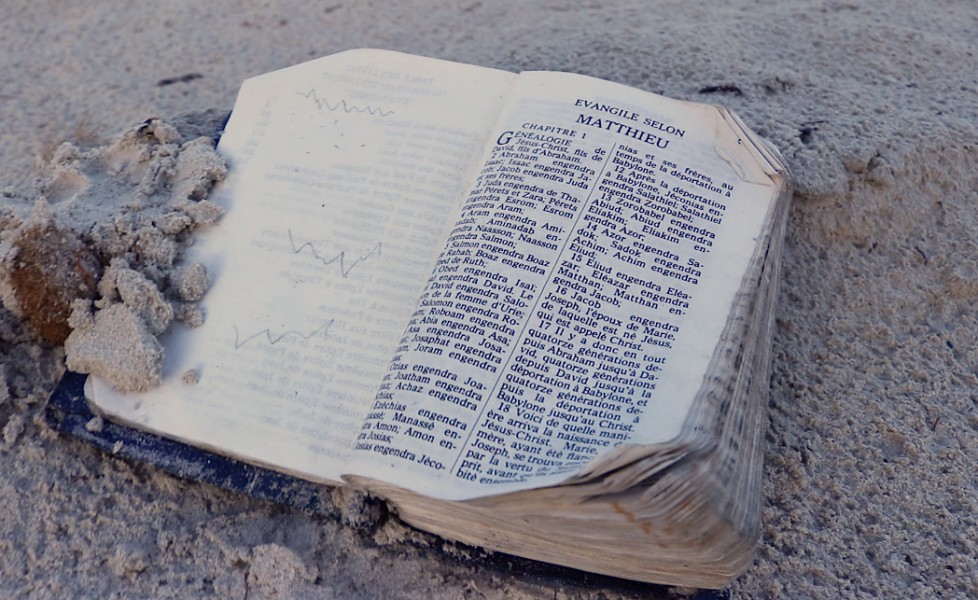 EVANGILE SELON
MATTHIEU
CHAPITRE 1
GÉNÉALOGIE de
Jésus-Christ, fils de
David, fils d'Abraham.
2 Abraham engendra
Isaac; Isaac engendra Ja-
cob; Jacob engendra Juda
et ses frères;
3 Juda engendra de Tha-
mar Pérets et Zara; Pérets
engendra Esrom; Esrom
engendra Aram;
4 Aram engendra Ami-
nadab; Aminadab en-
gendra Naasson; Naasson
engendra Salmon;
Salmon engendra Boaz
de Rahab; Boaz engendra
Obed de Ruth;
Obed engendra Isaï;
engendra David. Le
David engendra Salo-
mon de la femme d'Urie;
Salomon engendra Ro-
boam; Roboam engendra
Abia; Abia engendra Asa;
Asa engendra Josa-
phat; Josaphat engendra
Joram; Joram engendra
Ozias;
Ozias engendra Joa-
tham; Joatham engendra
Achaz; Achaz engendra
Ezéchias;
Ezéchias engendra
Manassé; Manassé en-
gendra Amon; Amon en-
gendra Josias;
Josias engendra Jéco-
nias et ses frères, au
temps de la déportation à
Babylone.
12 Après la déportation
à Babylone, Jéconias en-
gendra Salathiel; Salathiel
engendra Zorobabel;
13 Zorobabel engendra
Abiud; Abiud engendra
Eliakim; Eliakim en-
gendra Azor;
14 Azor engendra Sa-
dok; Sadok engendra
Achim; Achim engendra
Eliud;
15 Eliud engendra Eléa-
zar; Eléazar engendra
Matthan; Matthan en-
gendra Jacob;
16 Jacob engendra
Joseph, l'époux de Marie,
de laquelle est né Jésus,
qui est appelé Christ.
17 Il y a donc en tout
quatorze générations de-
puis Abraham jusqu'à Da-
vid, quatorze générations
depuis David jusqu'à la
déportation à Babylone, et
quatorze générations de-
puis la déportation à
Babylone jusqu'au Christ.
18 Voici de quelle mani-
ère arriva la naissance
Jésus-Christ. Marie,
mère, ayant été
Joseph, se trouva
par la vertu
prit, avant
bité